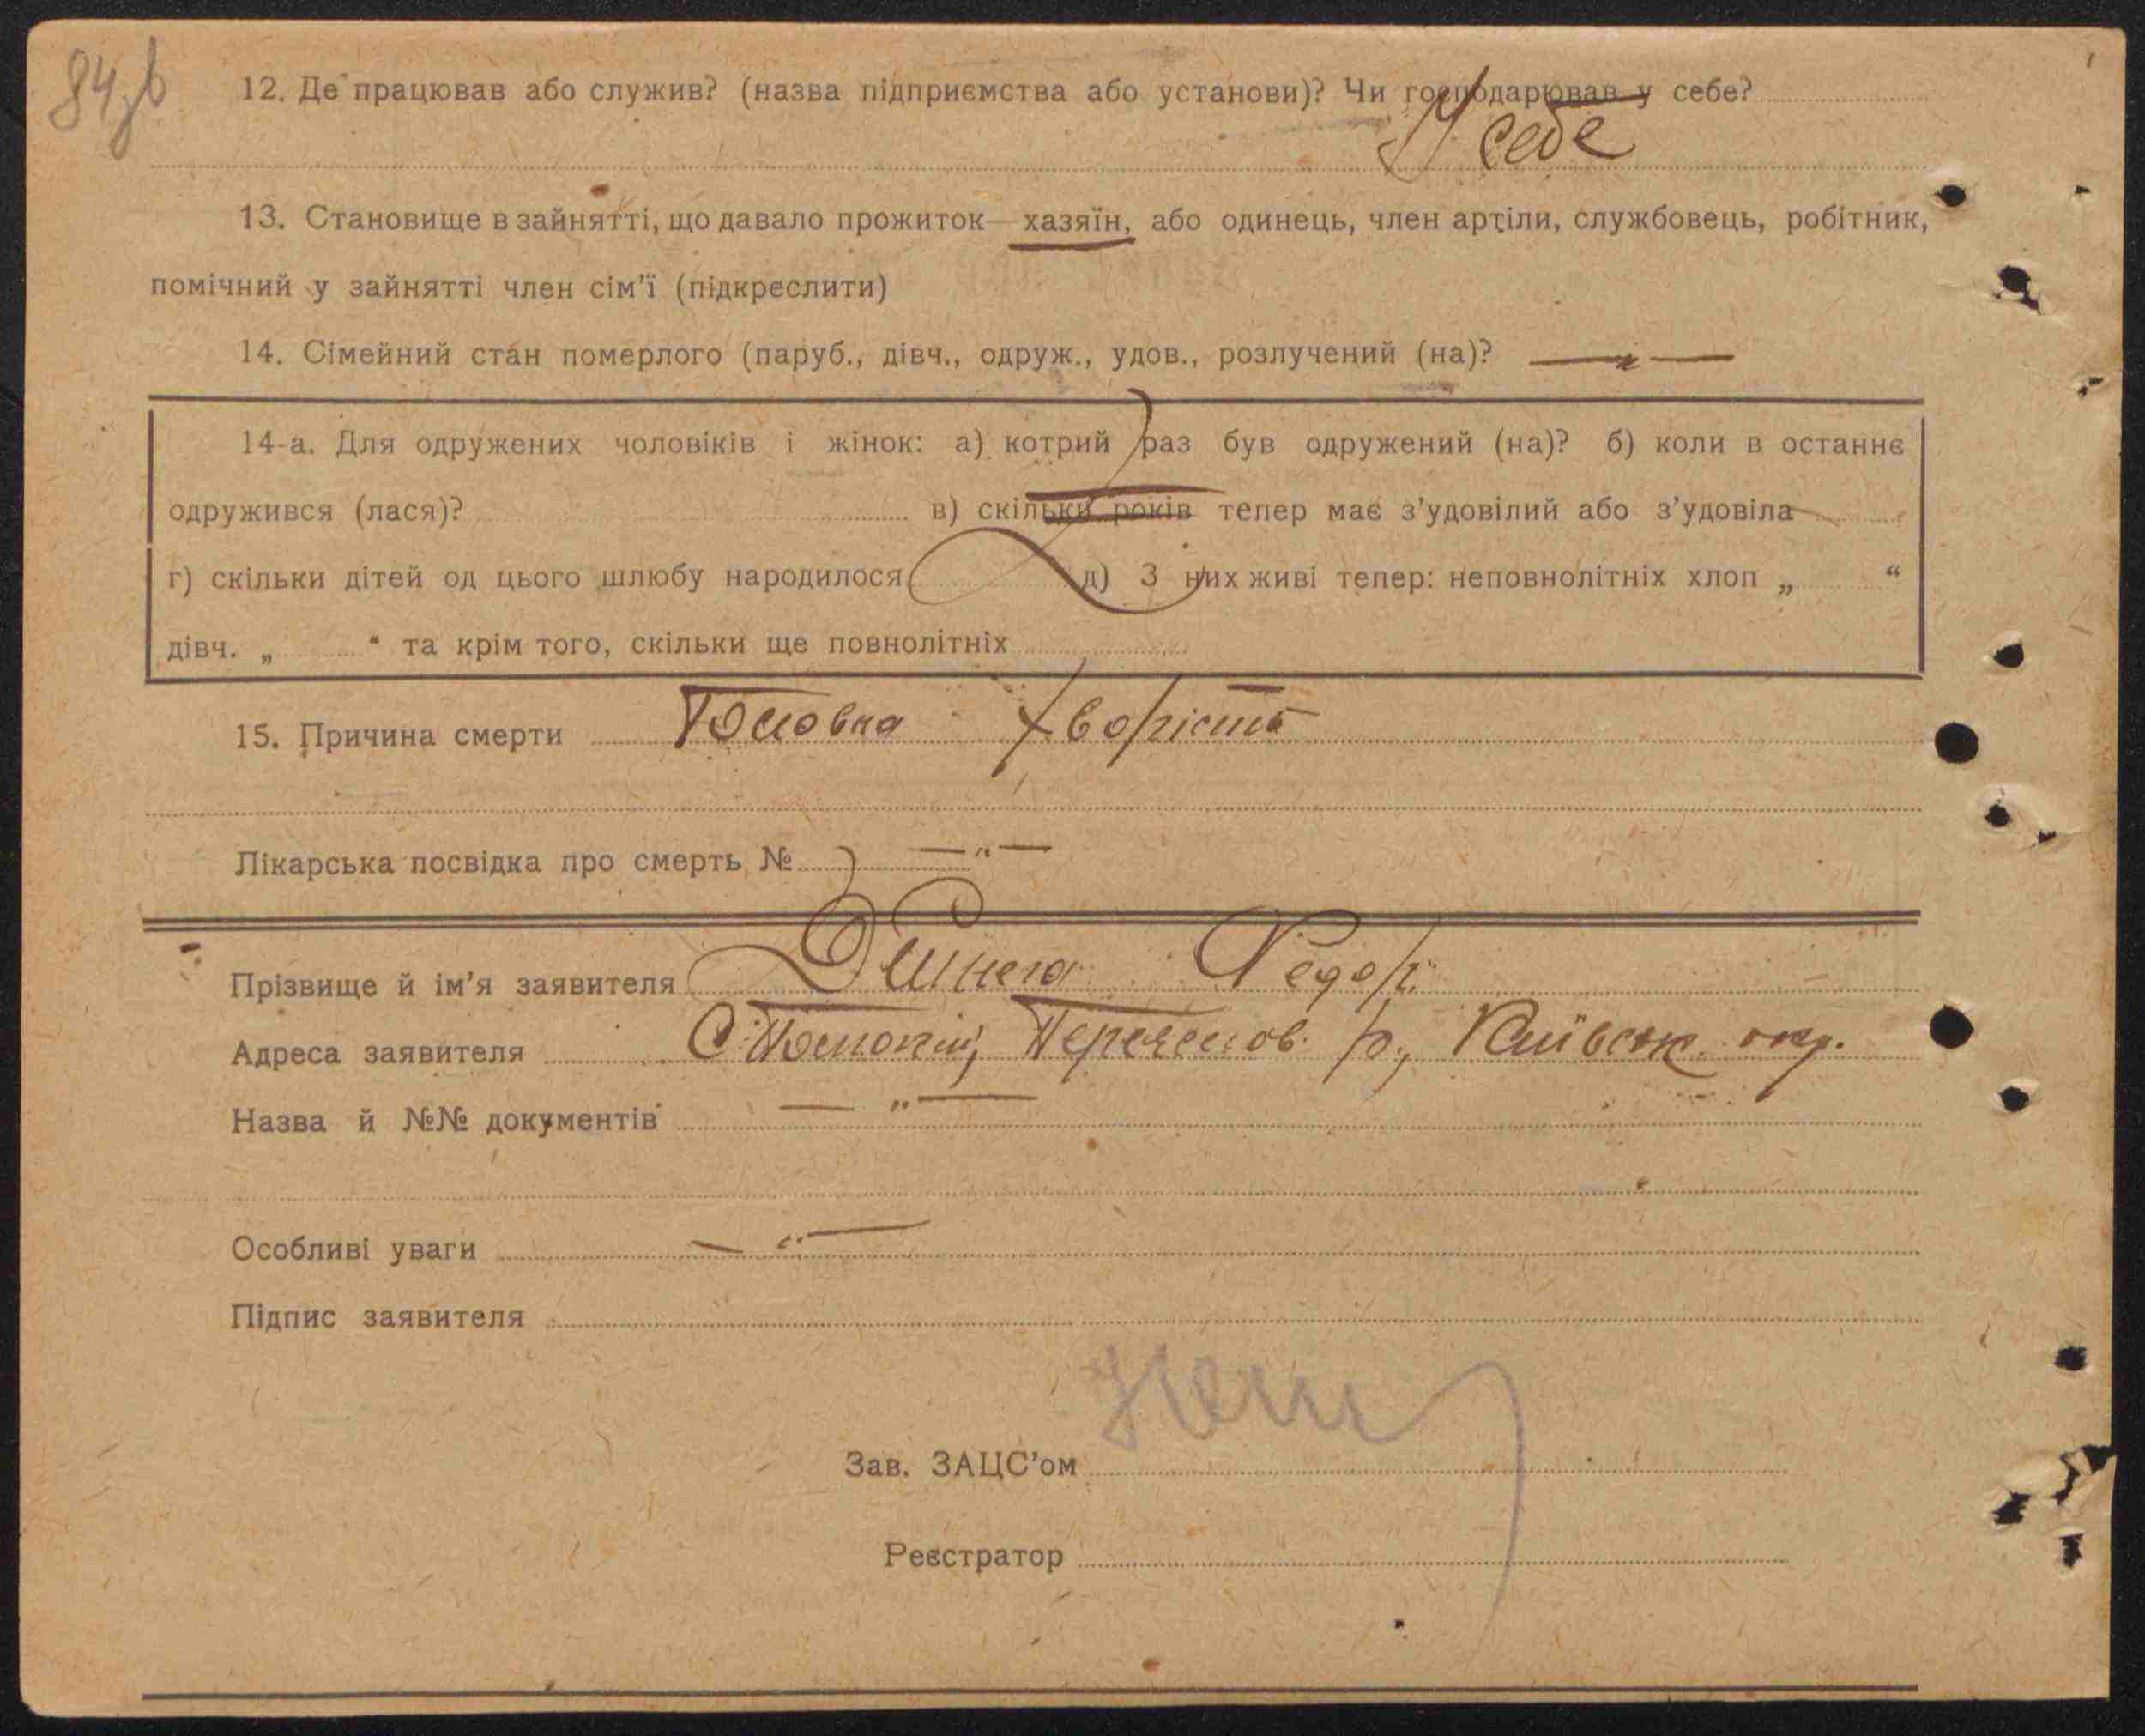 84зв
12. Де працював або служив? (назва підприємства або установи)? Чи господарював у себе?
У себе
13. Становище в зайнятті, що давало прожиток—хазяїн, або одинець, член артіли, службовець, робітник,
помічний у зайнятті член сім'ї (підкреслити)
14. Сімейний стан померлого (паруб., дівч., одруж., удов., розлучений (на)? — „ —
14-а. Для одружених чоловіків і жінок: а) котрий раз був одружений (на)? б) коли в останнє
одружився (лася)? в) скільки років тепер має з'удовілий або з'удовіла
г) скільки дітей од цього шлюбу народилося д) З них живі тепер: неповнолітніх хлоп „ “
дівч. „ “ та крім того, скільки ще повнолітніх
15. Причина смерти хворість
Лікарська посвідка про смерть № — „ —
Прізвище й ім'я заявителя Федор
Адреса заявителя р., Київськ. окр.
Назва й №№ документів — „ —
Особливі уваги — „ —
Підпис заявителя
Зав. ЗАЦС'ом
Реєстратор